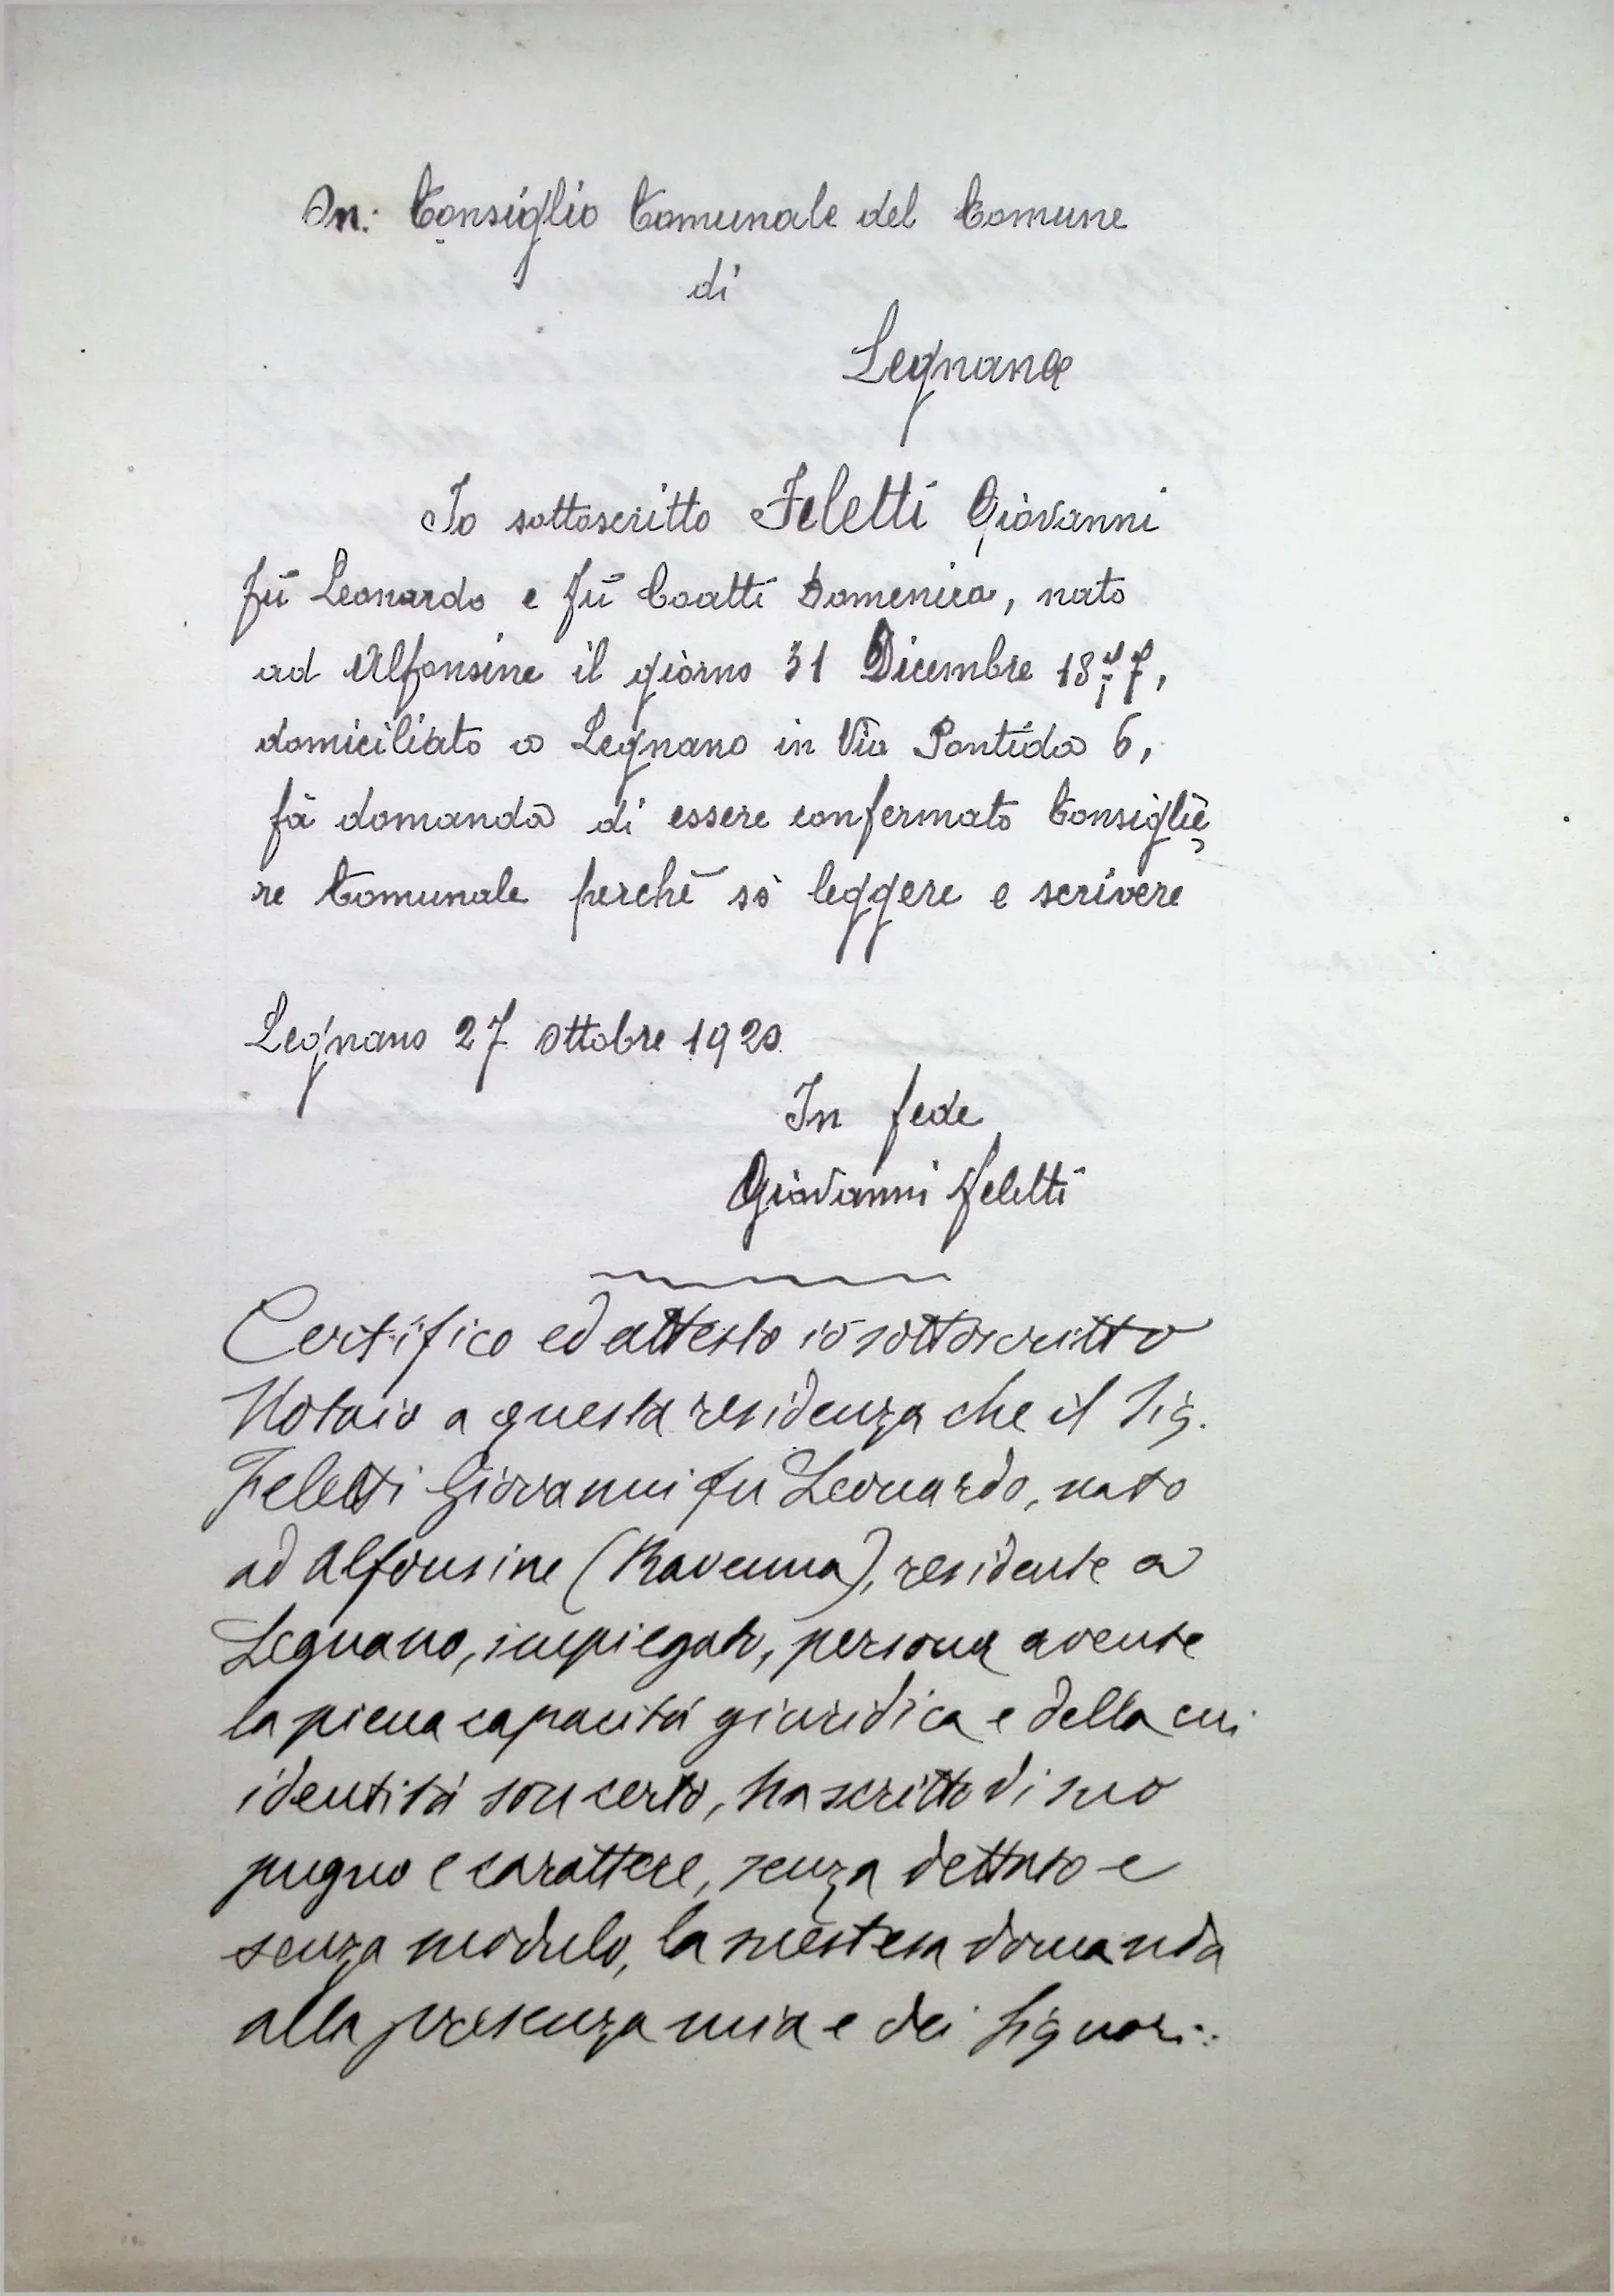 On: Consiglio Comunale del Comune
di
Legnano
Io sottoscritto Feletti Giovanni
fù Leonardo e fù Coatti Domenica, nato
ad Alfonsine il giorno 31 Dicembre 1877,
domiciliato a Legnano in Via Pontida 6,
fà domanda di essere confermato Consiglie
re Comunale perchè sò leggere e scrivere
Legnano 27 Ottobre 1920
In fede
Giovanni Feletti
Certifico ed attesto io sottoscritto
Notaio a questa residenza che il Sig.
Feletti Giovanni fu Leonardo, nato
ad Alfonsine (Ravenna), residente a
Legnano, impiegato, persona avente
la piena capacità giuridica e della cui
identità son certo, ha scritto di suo
pugno e carattere, senza dettato e
senza modulo, la suestesa domanda
alla presenza mia e dei Signori: